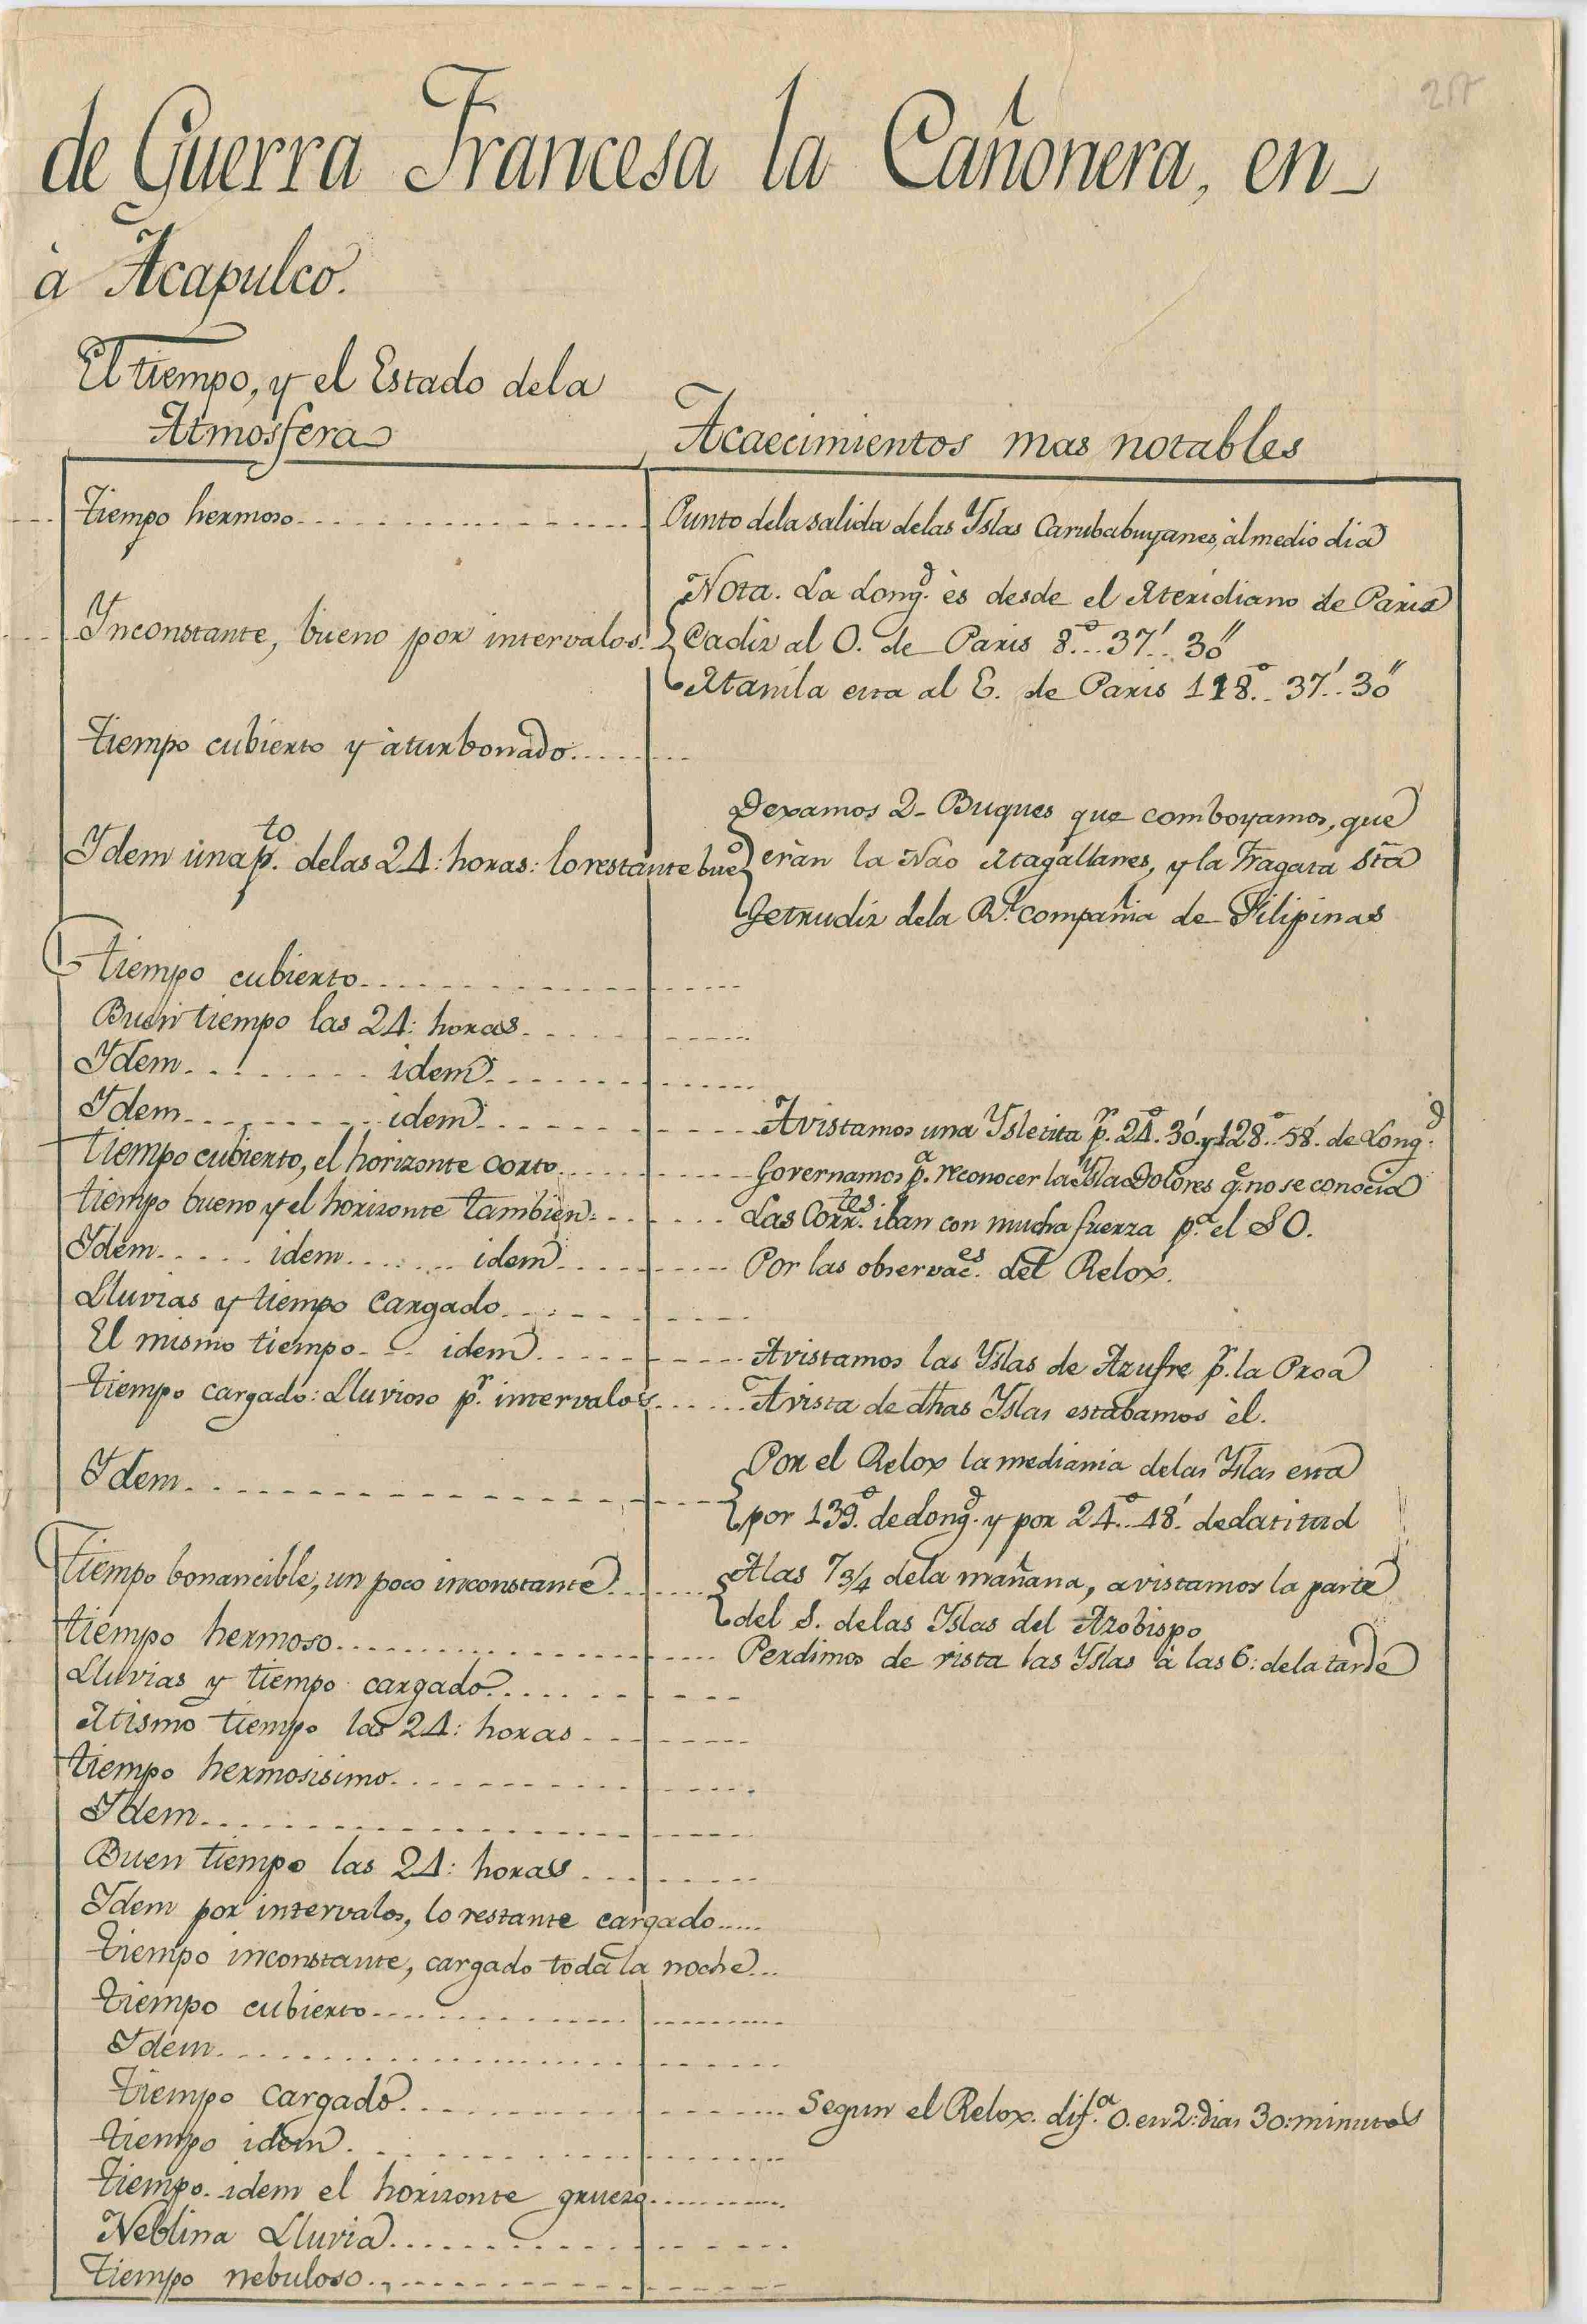 217
de Guerra Francesa la Cañonera, en
à Acapulco.
El tiempo, y el Estado dela
Atmosfera
Acaecimientos mas notables
Tiempo hermoso
Punto dela salida delas Yslas Carubabuyanes, àl medio dia
Nota. La Longd. ès desde el Meridiano de Paris
Ynconstante, bueno por intervalos.
Cadiz al O. de Paris 8°..37'..30"
Manila esta al E. de Paris 118°..37'..30"
Tiempo cubierto y àturbonado
Dexamos 2- Buques que comboyamos, que
Ydem ùna pto. delas 24: horas: lo restante bueo
eràn la Nao Magallanes, y la Fragata Sta
Getrudiz dela Rl. compañia de Filipinas
Tiempo cubierto
Buen tiempo las 24: horas
Ydem idem
Ydem idem
Avistamos una Ysletita pr. 24°. 30'. y 128°.. 58'. de Longd.
Tiempo cubierto, el horizonte corto
Governamos pa. reconocer la Ysla Dolores qe. no se conocia
tiempo bueno y el horizonte tambien
Las Corrtes. iban con mucha fuerza pa. el SO.
Ydem idem idem
Por las observaces. del Relox.
Lluvias y tiempo cargado
El mismo tiempo idem
Avistamos las Yslas de Azufre pr. la Proa
Tiempo cargado: Lluvioso pr. intervalos
Avista de dhas Yslas estabamos èl.
Ydem
Por el Relox la mediania delas Yslas esta
por 139°. de Longd. y por 24°..48'. de Latitud
Tiempo bonancible, un poco inconstante
Alas 7 3/4 dela mañana, avistamos la parte
del S. delas Yslas del Azobispo
tiempo hermoso
Perdimos de vista las Yslas à las 6: dela tarde
Lluvias y tiempo cargado
Mismo tiempo las 24: horas
tiempo hermosisimo
Ydem
Buen tiempo las 24: horas
Ydem por intervalos, lo restante cargado
Tiempo inconstante, cargado toda la noche
Tiempo cubierto
Ydem
Tiempo cargado
Segun el Relox. difa. O. en 2: dias 30: minutos
tiempo idem
Tiempo. idem el horizonte gruezo
Neblina Lluvia
Tiempo nebuloso